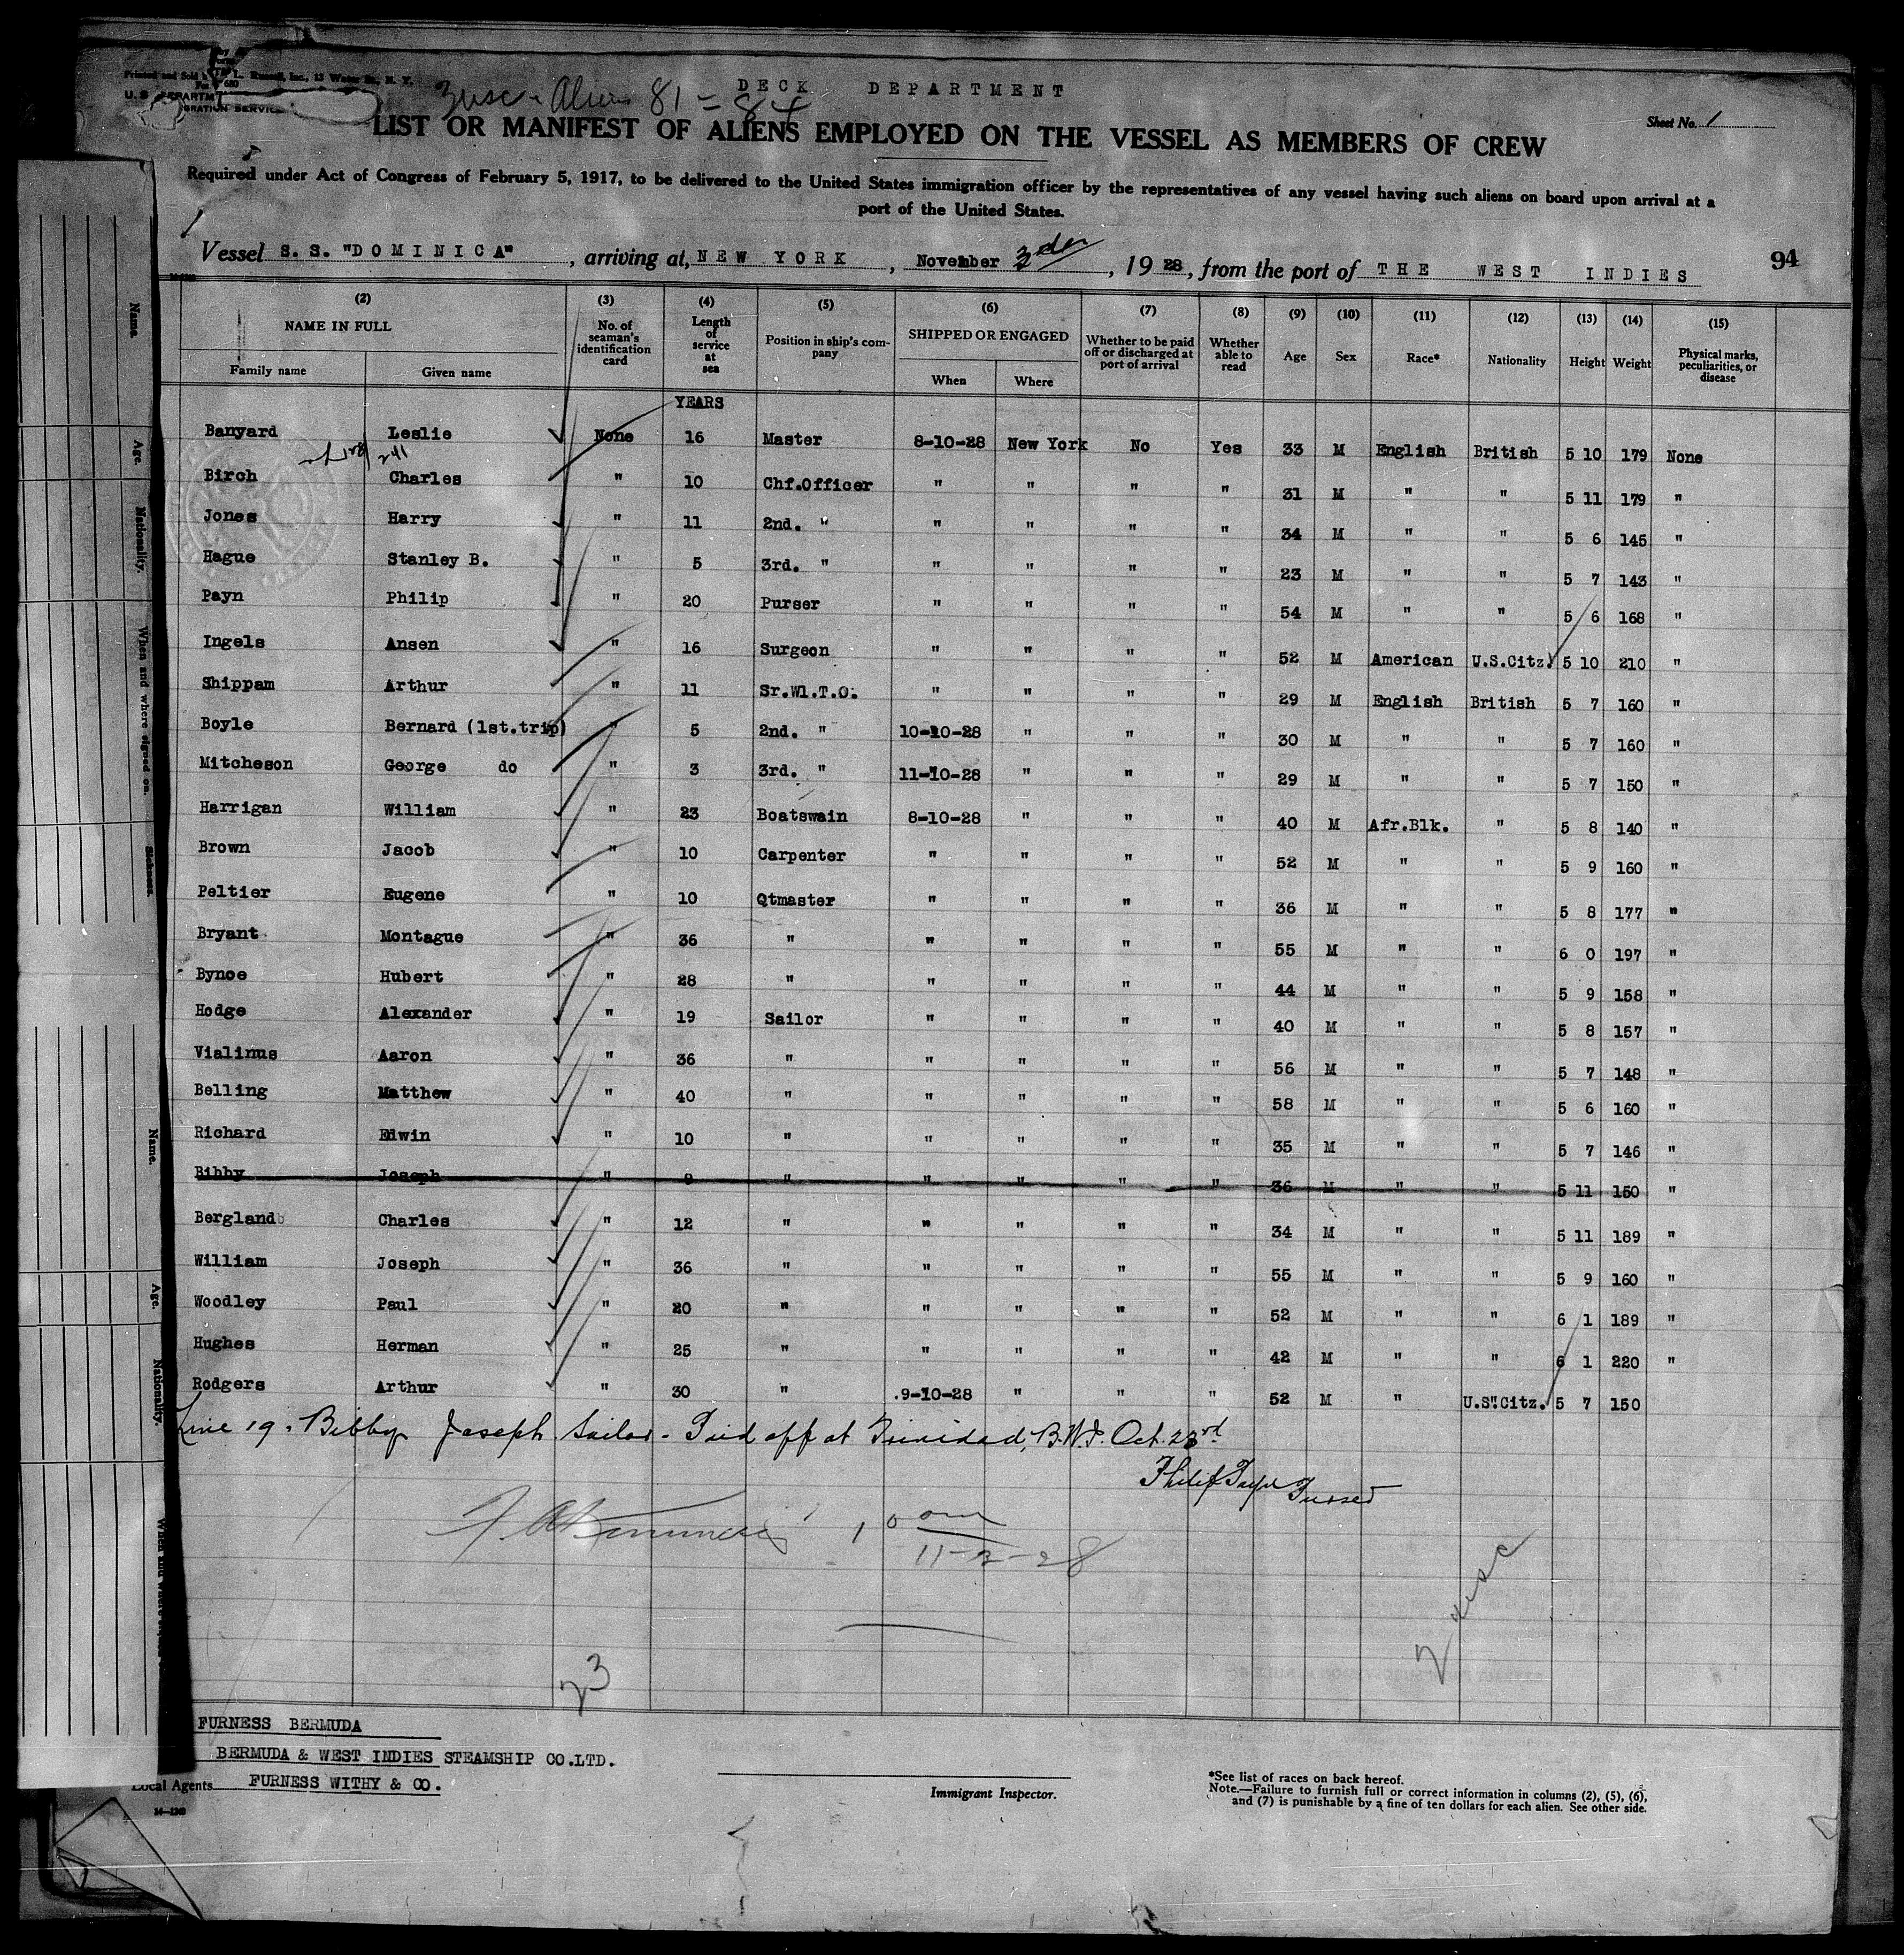 DECK DEPARTMENT
Printed and Sold by L. Russell, Inc., 13 Water St., N. Y.
Form 680
U. S. DEPARTMENT
IMMIGRATION SERVICE
3 usc - Aliens 81 = 84
Sheet No. 1
LIST OR MANIFEST OF ALIENS EMPLOYED ON THE VESSEL AS MEMBERS OF CREW
Required under Act of Congress of February 5, 1917, to be delivered to the United States immigration officer by the representatives of any vessel having such aliens on board upon arrival at a
port of the United States.
Vessel S. S. "DOMINICA", arriving at, NEW YORK, November 3rd, 1928, from the port of THE WEST INDIES
94
(2) (3) (4) (5) (6) (7) (8) (9) (10) (11) (12) (13) (14) (15)
NAME IN FULL No. of seaman's identification card Length of service at sea Position in ship's company SHIPPED OR ENGAGED Whether to be paid off or discharged at port of arrival Whether able to read Age Sex Race* Nationality Height Weight Physical marks, peculiarities, or disease
Family name Given name When Where
YEARS
Banyard Leslie None 16 Master 8-10-28 New York No Yes 33 M English British 5 10 179 None
Birch Charles " 10 Chf.Officer " " " " 31 M " " 5 11 179 "
Jones Harry " 11 2nd. " " " " " 34 M " " 5 6 145 "
Hague Stanley B. " 5 3rd. " " " " " 23 M " " 5 7 143 "
Payn Philip " 20 Purser " " " " 54 M " " 5 6 168 "
Ingels Ansen " 16 Surgeon " " " " 52 M American U.S.Citz. 5 10 210 "
Shippam Arthur " 11 Sr.Wl.T.O. " " " " 29 M English British 5 7 160 "
Boyle Bernard (1st.trip) " 5 2nd. " 10-10-28 " " " 30 M " " 5 7 160 "
Mitcheson George do " 3 3rd. " 11-10-28 " " " 29 M " " 5 7 150 "
Harrigan William " 23 Boatswain 8-10-28 " " " 40 M Afr.Blk. " 5 8 140 "
Brown Jacob " 10 Carpenter " " " " 52 M " " 5 9 160 "
Peltier Eugene " 10 Qtmaster " " " " 36 M " " 5 8 177 "
Bryant Montague " 36 " " " " " 55 M " " 6 0 197 "
Bynoe Hubert " 28 " " " " " 44 M " " 5 9 158 "
Hodge Alexander " 19 Sailor " " " " 40 M " " 5 8 157 "
Vialinus Aaron " 36 " " " " " 56 M " " 5 7 148 "
Belling Matthew " 40 " " " " " 58 M " " 5 6 160 "
Richard Edwin " 10 " " " " " 35 M " " 5 7 146 "
Bibby Joseph " 9 " " " " " 36 M " " 5 11 150 "
Bergland Charles " 12 " " " " " 34 M " " 5 11 189 "
William Joseph " 36 " " " " " 55 M " " 5 9 160 "
Woodley Paul " 20 " " " " " 52 M " " 6 1 189 "
Hughes Herman " 25 " " " " " 42 M " " 6 1 220 "
Rodgers Arthur " 30 " .9-10-28 " " " 52 M " U.S."Citz. 5 7 150
Line 19. Bibby Joseph Sailor - Paid off at Trinidad, B.W.I. Oct. 23rd
Philip Payn Purser
11-3-28
2 usc
23
FURNESS BERMUDA
BERMUDA & WEST INDIES STEAMSHIP CO.LTD.
Local Agents FURNESS WITHY & CO.
14-1240
Immigrant Inspector.
*See list of races on back hereof.
Note.—Failure to furnish full or correct information in columns (2), (5), (6),
and (7) is punishable by a fine of ten dollars for each alien. See other side.
Name.
Age.
Nationality.
When and where signed on.
Sickness.
Name.
Age.
Nationality.